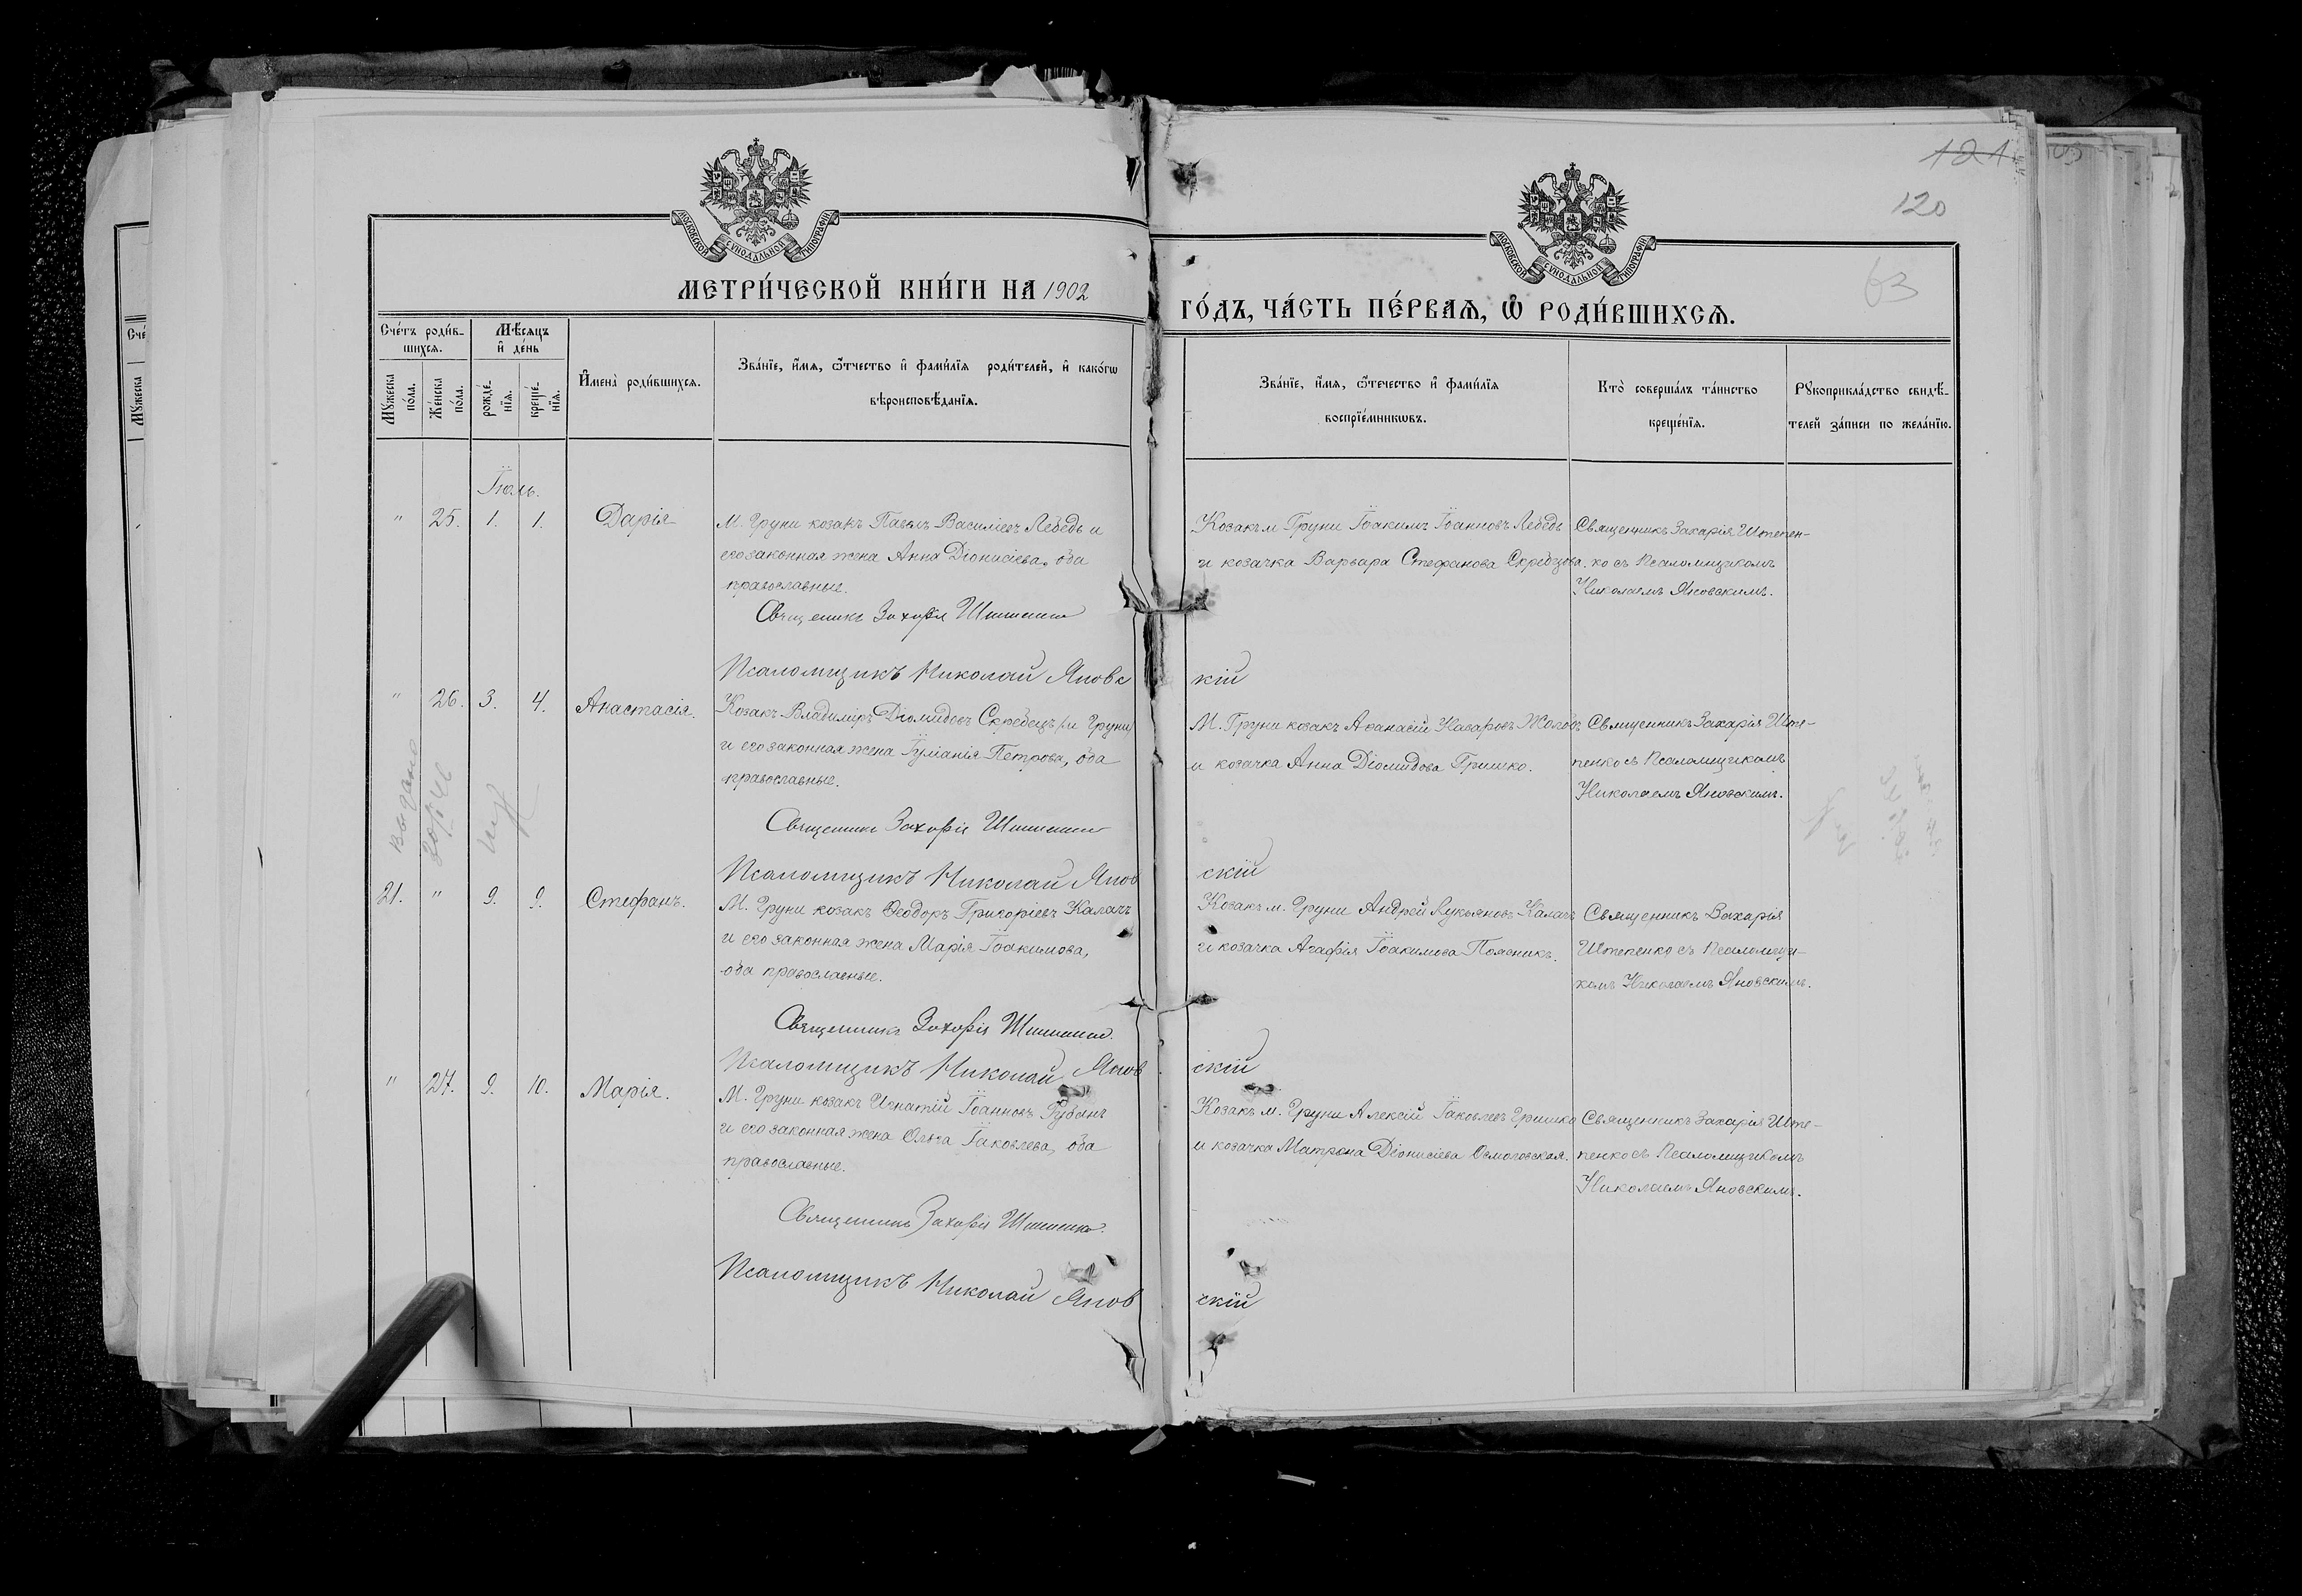 121
120
63
МОСКОВСКОЙ СУНОДАЛЬНОЙ ТИПОГРАФІИ
МОСКОВСКОЙ СУНОДАЛЬНОЙ ТИПОГРАФІИ
МЕТРИ́ЧЕСКОЙ КНИ́ГИ НА 1902
ГО́ДЪ, ЧА́СТЬ ПЕ́РВАѦ, Ѡ҆ РОДИ́ВШИХСѦ.
Сче́тъ роди́в-
шихсѧ.
Мꙋ́жеска по́ла.
Же́нска по́ла.
Мѣ́сѧцъ
и҆ де́нь
рожде́-
нїѧ.
креще́-
нїѧ.
И҆мена̀ роди́вшихсѧ.
Зва́нїе, и҆́мѧ, ѻ҆́тчество и҆ фами́лїѧ роди́телей, и҆ како́гѡ
вѣроисповѣ́данїѧ.
Зва́нїе, и҆́мѧ, ѻ҆те́чество и҆ фами́лїѧ
воспрїе́мникѡвъ.
Кто̀ соверша́лъ та́инство
креще́нїѧ.
Рꙋкоприкла́дство свидѣ́-
телей за́писи по жела́нїю.
Іюль.
" 25. 1. 1. Дарія
М. Груни козакъ Павелъ Василіевъ Лебедь и
его законная жена Анна Діонисіева, оба
православные.
Священникъ Захарія Штепенко
Псаломщикъ Николай Яновскій
Козакъ м. Груни Іоакимъ Іоанновъ Лебедь
и козачка Варвара Стефанова Скребцова.
Священникъ Захарія Штепен-
ко съ Псаломщикомъ
Николаемъ Яновскимъ.
" 26. 3. 4. Анастасія.
Козакъ Владиміръ Діомидовъ Скребецъ (м. Груни)
и его законная жена Іуліанія Петрова, оба
православные.
Священникъ Захарія Штепенко
Псаломщикъ Николай Яновскій
М. Груни козакъ Аѳанасій Назаровъ Жолобъ
и козачка Анна Діомидова Гришко.
Священникъ Захарія Ште-
пенко съ Псаломщикомъ
Николаемъ Яновскимъ.
выдано
21. " 9. 9. Стефанъ.
М. Груни козакъ Ѳеодоръ Григоріевъ Калачъ
и его законная жена Марія Іоакимова,
оба православные.
Священникъ Захарія Штепенко.
Псаломщикъ Николай Яновскій
Козакъ м. Груни Андрей Лукьяновъ Калачъ
и козачка Агафія Іоакимова Поясникъ.
Священникъ Захарія
Штепенко съ Псаломщи-
комъ Николаемъ Яновскимъ.
" 27. 9. 10. Марія.
М. Груни козакъ Игнатій Іоанновъ Губанъ
и его законная жена Ольга Іаковлева, оба
православные.
Священникъ Захарія Штепенко.
Псаломщикъ Николай Яновскій
Козакъ м. Груни Алексій Іаковлевъ Гришко
и козачка Матрона Діонисіева Осмоловская.
Священникъ Захарія Ште-
пенко съ Псаломщикомъ
Николаемъ Яновскимъ.